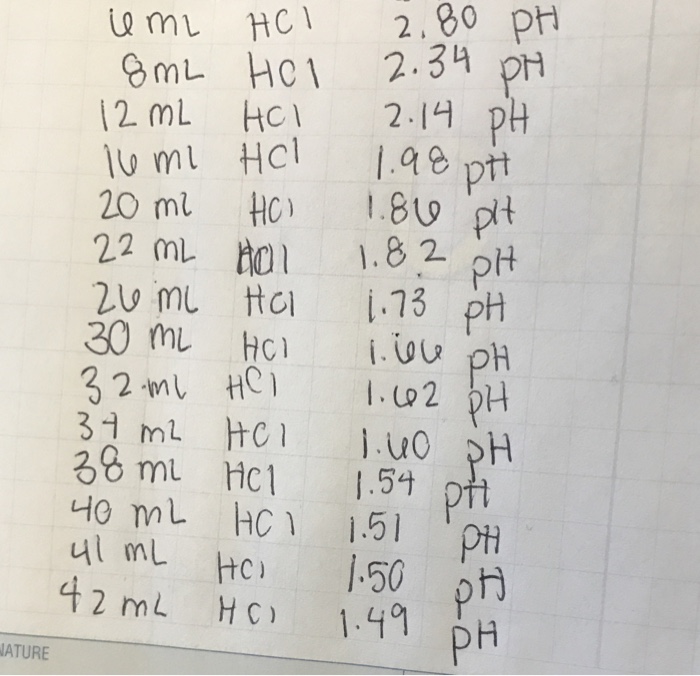 6 mL HCl 2.80 pH
8mL HCl 2.34 pH
12 mL HCl 2.14 pH
16 ml HCl 1.98 pH
20 ml HCl 1.86 pH
22 mL HCl 1.82 pH
26 mL HCl 1.73 pH
30 mL HCl 1.66 pH
32 ml HCl 1.62 pH
34 mL HCl 1.60 pH
38 mL HCl 1.54 pH
40 mL HCl 1.51 pH
41 mL HCl 1.50 pH
42 mL HCl 1.49 pH
NATURE